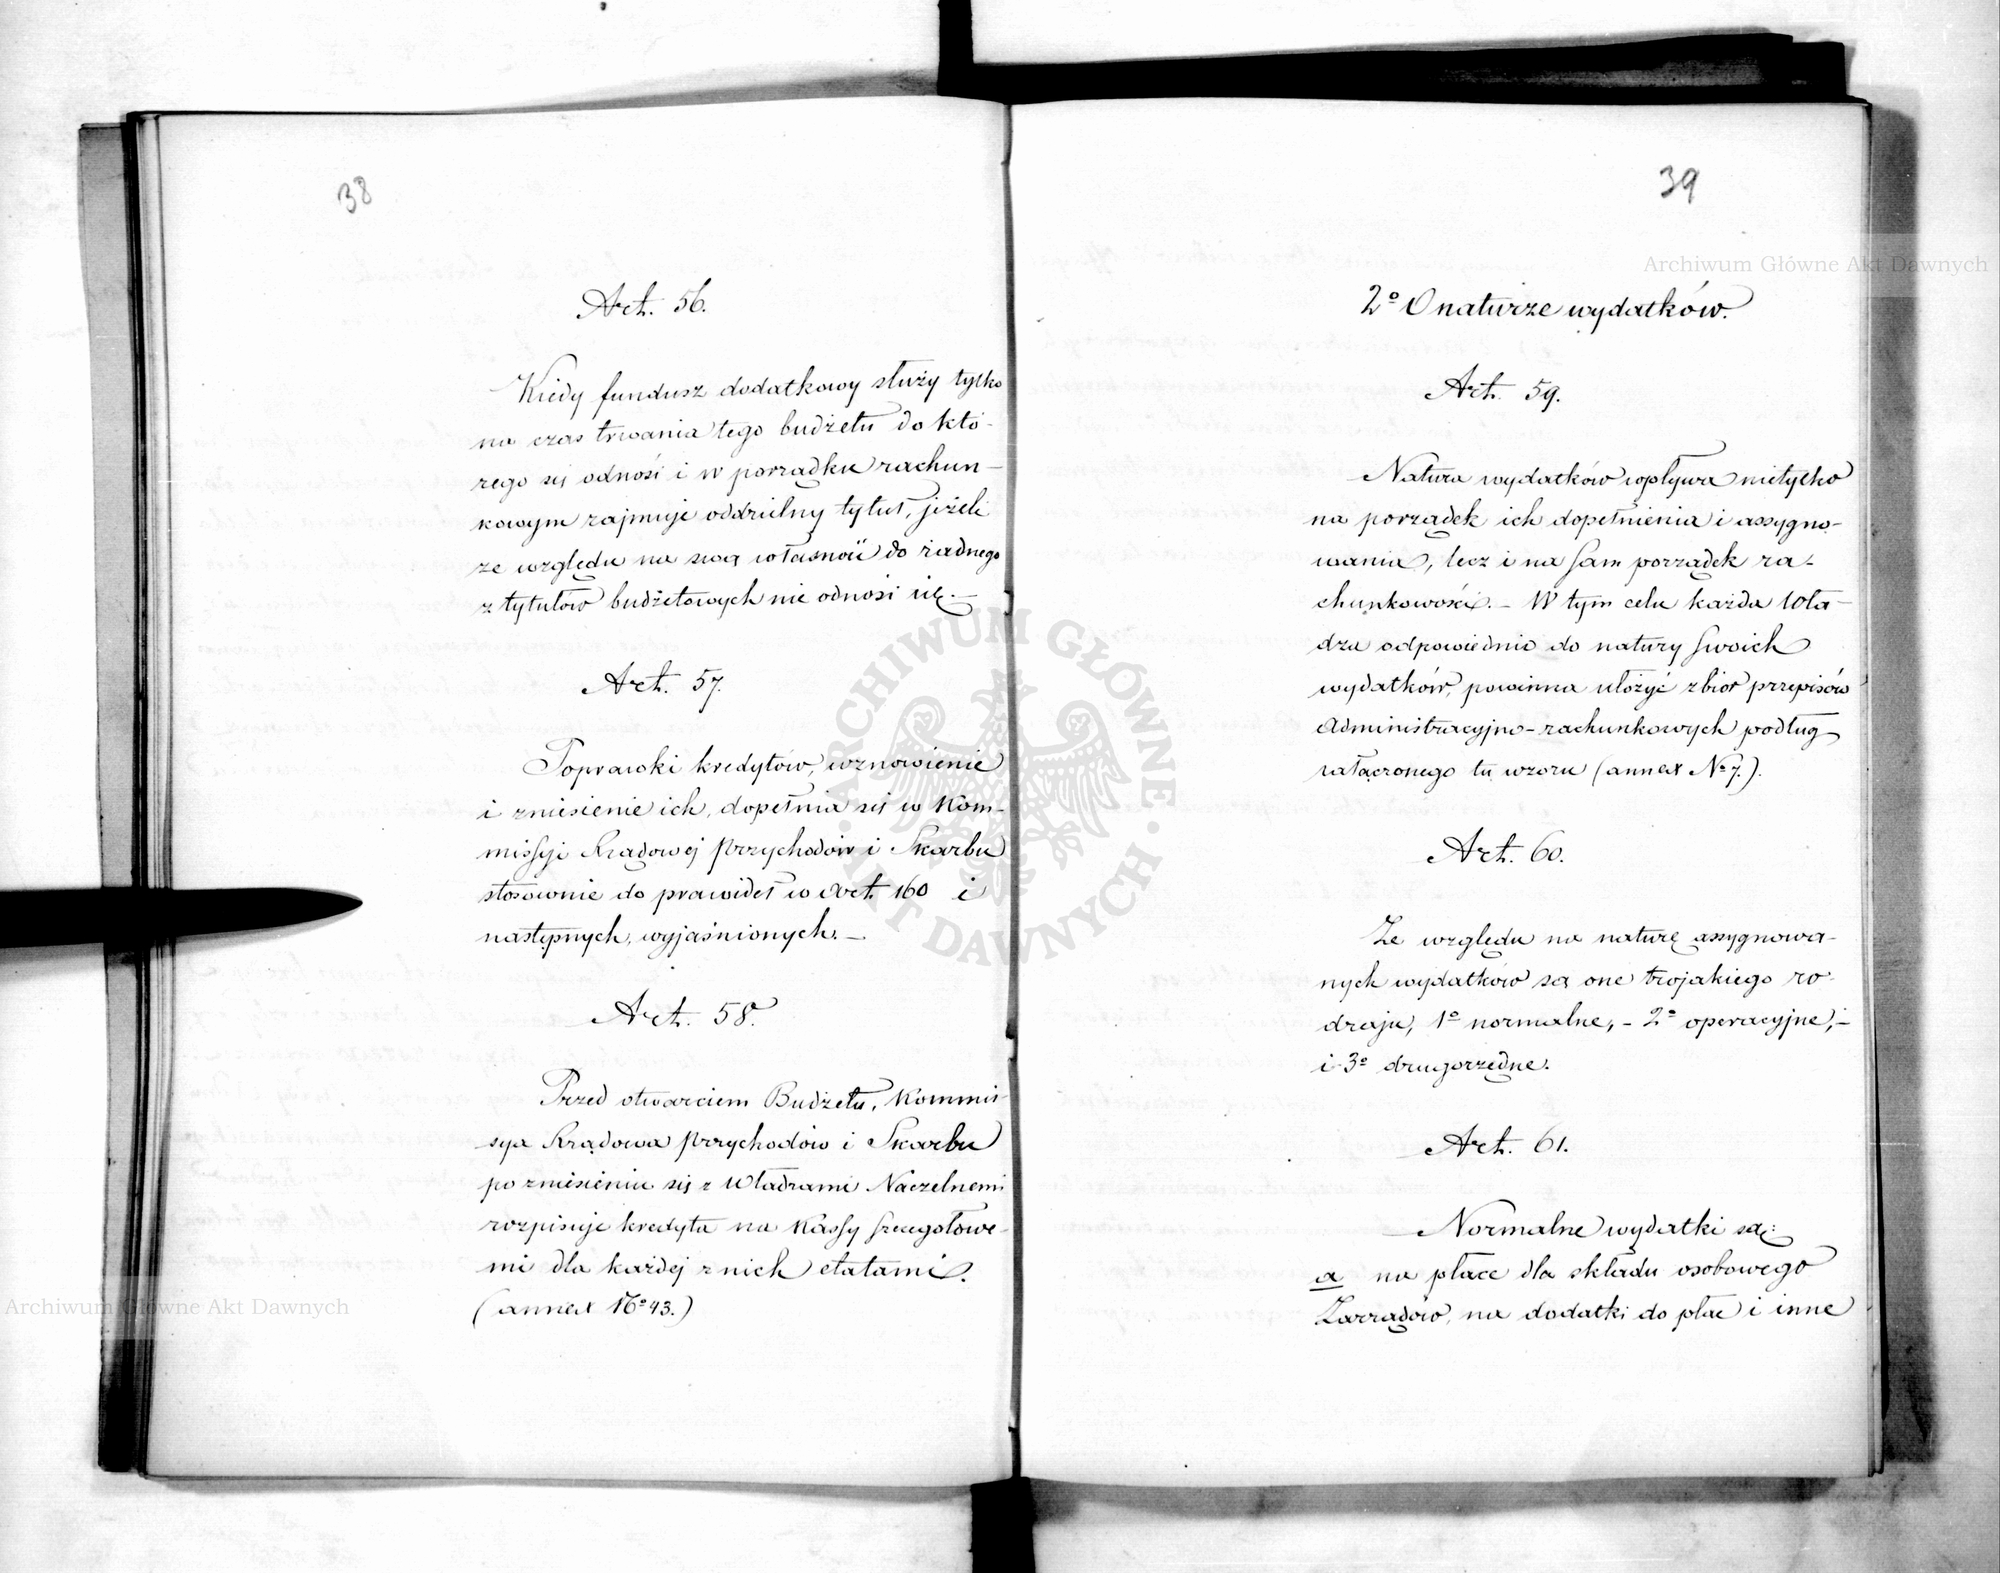 38
Art. 56.
Kiedy fundusz dodatkowy służy tylko
na czas trwania tego budżetu do któ-
rego się odnosi i w porządku rachun-
kowym zajmuje oddzielny tytuł, jeżeli
ze względu na swą własność do żadnego
z tytułów budżetowych nie odnosi się. —
Art. 57.
Poprawki kredytów, wznowienie
i zniesienie ich, dopełnia się w Kom-
missyi Rządowej Przychodów i Skarbu
stosownie do prawideł w Art. 160 i
następnych, wyjaśnionych. —
Art. 58.
Przed otwarciem Budżetu, Kommis-
sya Rządowa Przychodów i Skarbu
po zniesieniu się z Władzami Naczelnemi
rozpisuje kredyta na Kassy szczegołowe-
mi dla każdej z nich etatami.
(annex № 43.)
39
2º O naturze wydatków.
Art. 59.
Natura wydatków wpływa nietylko
na porządek ich dopełnienia i assygno-
wania, lecz i na sam porządek ra-
chunkowości. — W tym celu każda Wła-
dza odpowiednio do natury swoich
wydatków, powinna ułożyć zbiór przepisów
Administracyjno-rachunkowych podług
załączonego tu wzoru (annex № 7.).
Art. 60.
Ze względu na naturę assygnowa-
nych wydatków są one trojakiego ro-
dzaju, 1º normalne, — 2º operacyjne, —
i 3º drugorzędne.
Art. 61.
Normalne wydatki są:
a na płace dla składu osobowego
Zarządów, na dodatki do płac i inne
Archiwum Główne Akt Dawnych
Archiwum Główne Akt Dawnych
ARCHIWUM GŁÓWNE · AKT DAWNYCH ·